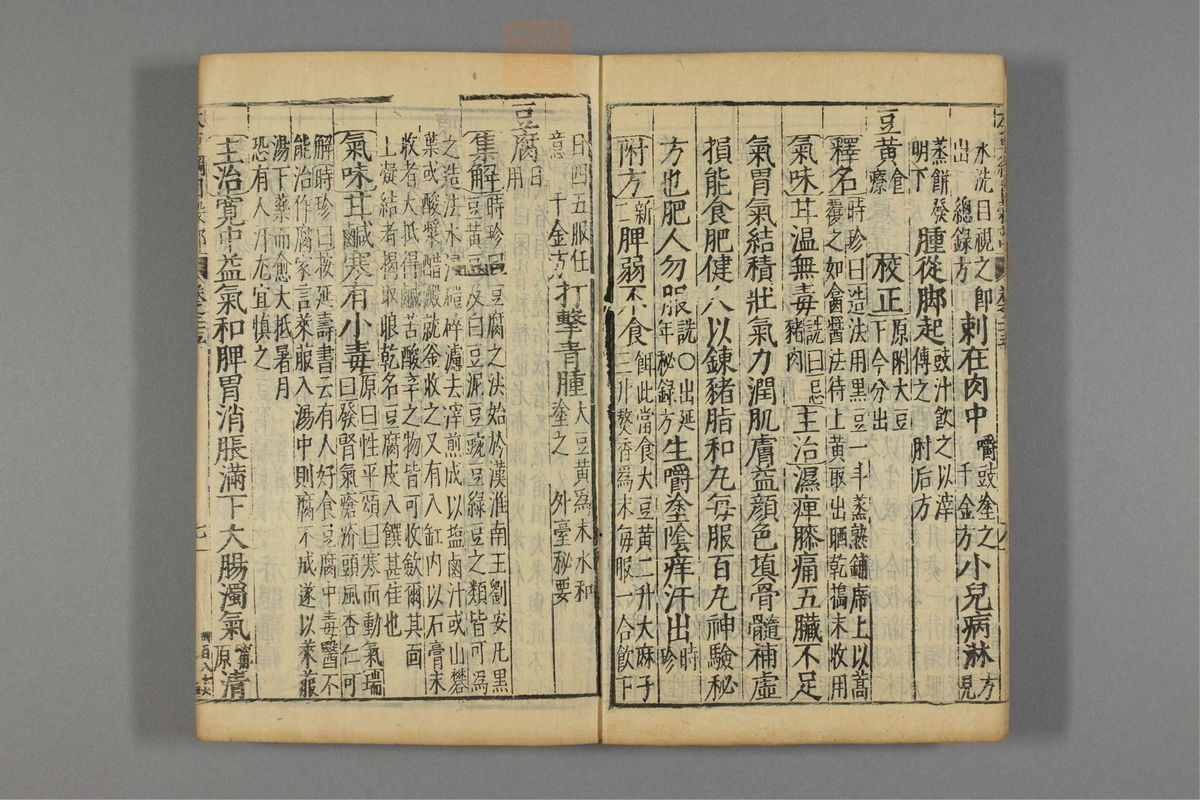 水洗目視之即
出 總錄方
刺在肉中
嚼豉塗之
千金方
小兒病淋
方見
蒸餅發
明下
腫從脚起
豉汁飲之以滓
傅之 肘后方
豆黃
食療
校正
原附大豆
下今分出
釋名
時珍曰造法用黑豆一斗蒸熟鋪席上以蒿
覆之如盦醬法待上黃取出晒乾搗末收用
氣味甘溫無毒
詵曰忌
豬肉
主治濕痺膝痛五臟不足
氣胃氣結積壯氣力潤肌膚益顏色填骨髓補虛
損能食肥健人以鍊豬脂和丸每服百丸神驗秘
方也肥人勿服
詵〇出延
年秘錄方
生嚼塗陰痒汗出
時
珍
附方
新
二
脾弱不食
餌此當食大豆黃二升大麻子
三升熬香爲末每服一合飲下
日四五服任
意 千金方
打擊青腫
大豆黃爲末水和
塗之 外臺秘要
豆腐
日
用
集解
時珍曰豆腐之法始於漢淮南王劉安凡黑
豆黃豆及白豆泥豆豌豆綠豆之類皆可爲
之造法水浸磑碎濾去滓煎成以鹽鹵汁或山礬
葉或酸漿醋澱就釜收之又有入缸內以石膏末
收者大抵得鹹苦酸辛之物皆可收歛爾其面
上凝結者揭取眼乾名豆腐皮入饌甚佳也
氣味甘鹹寒有小毒
原曰性平頌曰寒而動氣瑞
曰發腎氣瘡疥頭風杏仁可
解時珍曰按延壽書云有人好食豆腐中毒醫不
能治作腐家言萊服入湯中則腐不成遂以萊菔
湯下藥而愈大抵暑月
恐有人汗尤宜慎之
主治寬中益氣和脾胃消脹滿下大腸濁氣
甯
原
清